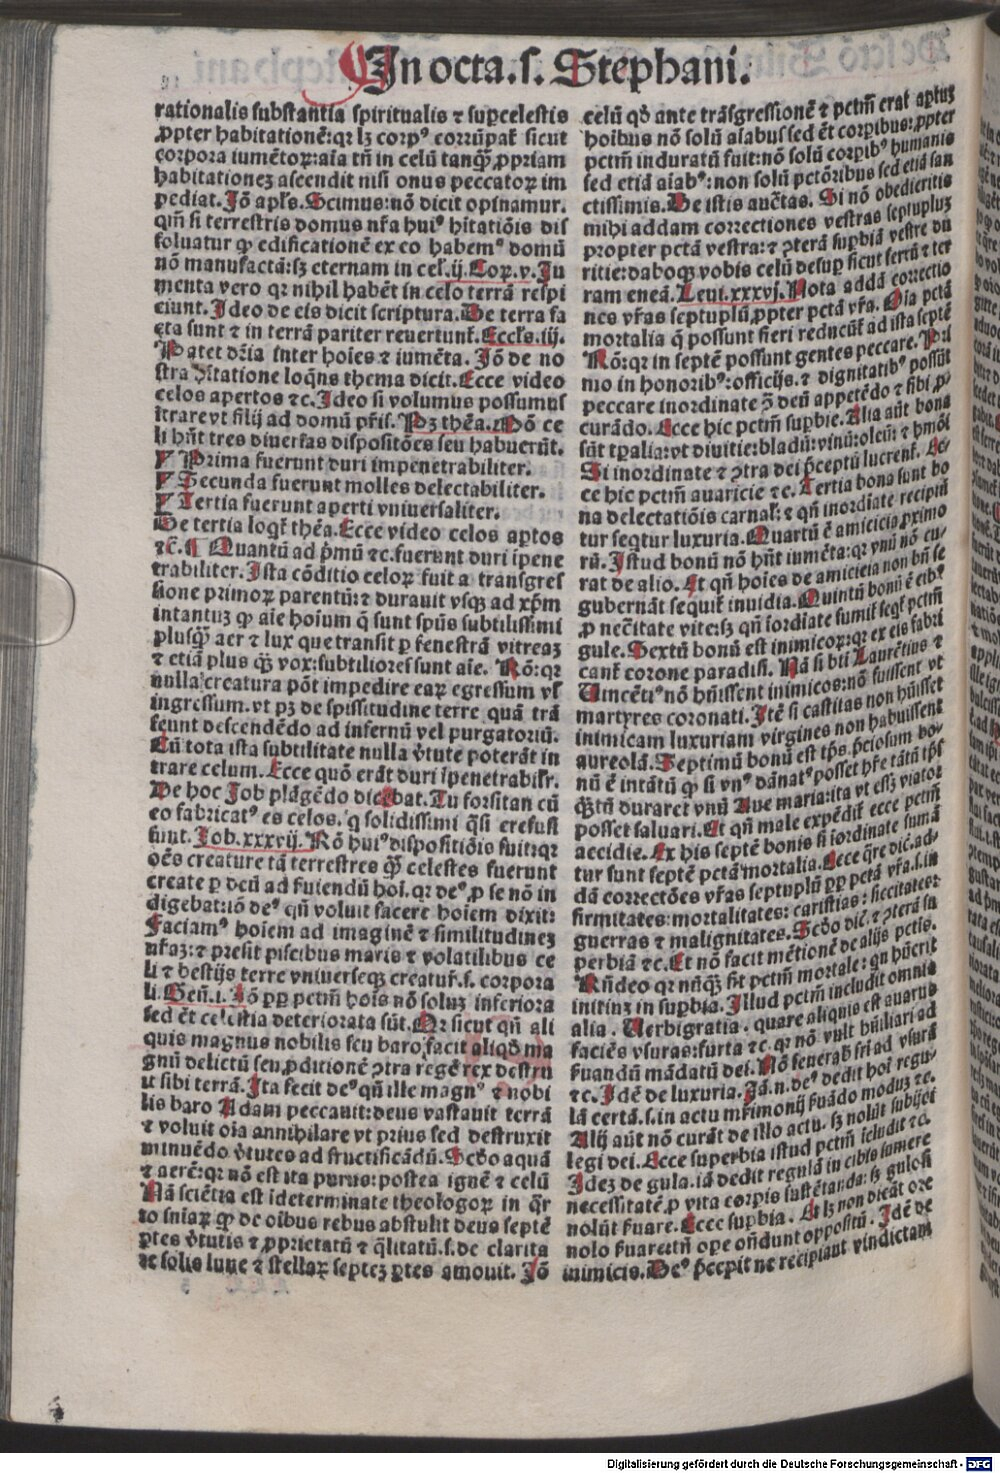 In octa.s. Stephani.
rationalis substantia spiritualis ⁊ suꝑcelestis
ꝓpter habitationē:qꝛ lꝫ corpꝰ corrūpat᷑ sicut
corpora iumētoꝝ:aīa tn̄ in celū tanqȝ ꝓpriam
habitationeȝ ascendit nisi onus peccatoꝝ im
pediat. Jō apl's. Scimus:nō dicit opinamur.
qm̄ si terrestris domus nr̄a huiꝰ hitatiōis dis
soluatur ꝙ edificationē ex eo habemꝰ domū
nō manufactā:sꝫ eternam in cel'.ij. Coꝝ.v. Ju
menta vero qꝛ nihil habēt in celo terrā respi
ciunt. Ideo de eis dicit scriptura. De terra fa
cta sunt ⁊ in terrā pariter reuertunt᷑. Eccl's.iij.
Patet dr̄ia inter hoīes ⁊ iumēta. Jō de no
stra hitatione loqn̄s thema dicit. Ecce video
celos apertos ⁊c. Ideo si volumus possumus
itrare vt filij ad domū pr̄is. Pꝫ thēa. Nō ce
li hn̄t tres diuersas dispositōes seu habuerūt.
¶ Prima fuerunt duri impenetrabiliter.
¶ Secunda fuerunt molles delectabiliter.
¶ Tertia fuerunt aperti vniuersaliter.
De tertia loqt᷑ thēa. Ecce video celos aptos
⁊c̄. ¶ Quantū ad pͥmū ⁊c. fuerunt duri ipene
trabiliter. Ista cōditio celoꝝ fuit a transgres
sione primoꝝ parentū:⁊ durauit vsqȝ ad xp̄m
intantuȝ ꝙ aīe hoīum q̄ sunt spūs subtilissimi
plusqȝ aer ⁊ lux que transit ꝑ fenestrā vitreaȝ
⁊ etiā plus qȝ vox:subtiliores sunt aīe. Rō:qꝛ
nulla creatura pōt impedire eaꝝ egressum vl'
ingressum. vt pꝫ de spissitudine terre quā trā
seunt descendēdo ad infernū vel purgatoriū.
Cū tota ista subtilitate nulla v̓tute poterāt in
trare celum. Ecce quō erāt duri ipenetrabilr̄.
De hoc Job plāgēdo dicebat. Tu forsitan cū
eo fabricatꝰ es celos. q solidissimi qͣsi ere fusi
sunt. Job.xxxvij. Rō huiꝰ dispositiōis fuit:qꝛ
oēs creature tā terrestres qȝ celestes fuerunt
create ꝑ deū ad ſuiendū hoī. qꝛ deꝰ ꝑ se nō in
digebat:iō deꝰ qn̄ voluit facere hoīem dixit:
Faciamꝰ hoīem ad imaginē ⁊ similitudineȝ
nr̄aȝ:⁊ presit piscibus maris ⁊ volatilibus ce
li ⁊ bestijs terre vniuerseqȝ creatur̄.s. corpora
li. Gen̄.i. Jō ꝓp pctm̄ hoīs nō soluȝ inferiora
sed ēt celestia deteriorata sūt. Qꝛ sicut qn̄ ali
quis magnus nobilis seu baro facit aliqd̓ ma
gnū delictū seu ꝓditionē ꝯtra regē rex destru
it sibi terrā. Ita fecit deꝰ qn̄ ille magnꝰ ⁊ nobi
lis baro Adam peccauit:deus vastauit terrā
⁊ voluit oīa annihilare vt prius sed destruxit
minuēdo v̓tutes ad fructificādū. Scd̓o aquā
⁊ aerē:qꝛ nō est ita purus:postea ignē ⁊ celū
Nā sciētia est ideterminate theologoꝝ in qͣr
to sniaꝝ ꝙ de oībus rebus abstulit deus septē
ꝑtes v̓tutis ⁊ ꝓprietatū ⁊ qͣlitatū.s. de clarita
te solis lune ⁊ stellaꝝ septeȝ ꝑtes amouit. Jō
celū qd̓ ante trāsgressionē ⁊ pctm̄ erat aptuȝ
hoībus nō solū aīabus sed ēt corꝑibus:ꝓpter
pctm̄ induratū fuit:nō solū corꝑibꝰ humanis
sed etiā aīabꝰ:non solū pctōribus sed etiā san
ctissimis. De istis auctas. Si nō obedieritis
mihi addam correctiones vestras septupluȝ
propter pctā vestra:⁊ ꝯterā suꝑbiā vestre du
ritie:daboqȝ vobis celū desuꝑ sicut ferrū ⁊ ter
ram eneā. Leui.xxxvj. Nota addā correctio
nes vr̄as septuplū ꝓpter pctā vr̄a. Oīa pctā
mortalia q̄ possunt fieri reducūt᷑ ad ista septē
Rō:qꝛ in septē possunt gentes peccare. Pri
mo in honoribꝰ:officijs. ⁊ dignitatibꝰ possūt
peccare inordinate ꝯ̄ deū appetēdo ⁊ sibi ꝓ
curādo. Ecce hic pctm̄ suꝑbie. Alia aūt bona
sūt tꝑalia:vt diuitie:bladū:vinū:oleū: ⁊ hmōi
Si inordinate ⁊ ꝯtra dei p̄ceptū lucrent᷑. Ec
ce hic pctm̄ auaricie ⁊c. Tertia bona sunt bo
na delectatiōis carnal': ⁊ qn̄ inordīate recipiū
tur seqtur luxuria. Quartū ē amicicia ꝓximo
rū. Istud bonū nō hn̄t iumēta:qꝛ vnū nō cu
rat de alio. Et qn̄ hoīes de amicicia non bn̄ se
gubernāt sequit᷑ inuidia. Quintū bonū ē cibꝰ
ꝓ nec̄itate vite:sꝫ qn̄ iordiate sumit᷑ seqt᷑ pctm̄
gule. Sextū bonū est inimicoꝝ:qꝛ ex eis fabri
cant᷑ corone paradisi. Nā si bti Laurētius ⁊
Uincētiꝰ nō hūissent inimicos:nō fuissent vt
martyres coronati. Itē si castitas non hūisset
inimicam luxuriam virgines non habuissent
aureolā. Septimū bonū est tp̄s. p̄ciosum bo
nū ē intātū ꝙ si vnꝰ dānatꝰ posset hr̄e tātū tp̄s
qͣtū duraret vnū Aue maria:ita vt esset viator
posset saluari. Et qn̄ male expēdit᷑ ecce pctm̄
accidie. Ex his septē bonis si iordinate sumā
tur sunt septē pctā mortalia. Ecce qͣre dic̄.ad
dā correctōes vr̄as septuplū ꝓp pctā vr̄a.s.in
firmitates:mortalitates: caristias: siccitates:
guerras ⁊ malignitates. Scd̓o dic̄. ⁊ ꝯterā su
perbiā ⁊c. Et nō facit mētionē de alijs pctis.
Rn̄deo qꝛ nūqȝ fit pctm̄ mortale: qn hūerit
initiuȝ in suꝑbia. Illud pctm̄ includit omnia
alia. Uerbigratia. quare aliquis est auarus
faciēs vsuras:furta ⁊c. qꝛ nō vult hūiliari ad
ſuandū mādatū dei. Nō fenerab̓ fri ad vsurā
⁊c. Idē de luxuria. Jā.n.deꝰ dedit hoī regu
lā certā.s.in actu mr̄imonij ſuādo moduȝ ⁊c.
Alij aūt nō curāt de illo actu. sꝫ nolūt subijci
legi dei. Ecce superbia istud pctm̄ īcludit ⁊c.
Ideȝ de gula.iā dedit regulā in cibis sumere
necessitatē ꝓ vita corꝑis sustētanda: sꝫ gulosi
nolūt ſuare. Ecce suꝑbia. Et lꝫ non dicāt ore
nolo ſuare:tn̄ oꝑe on̄dunt oppositū. Idē de
inimicis. Deꝰ p̄cepit ne recipiant vindictam
Digitalisierung gefördert durch die Deutsche Forschungsgemeinschaft - DFG